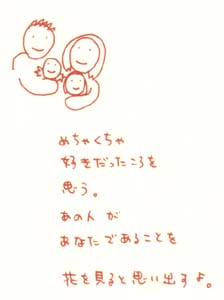 めちゃくちゃ
好きだったころを
思う。
あの人が
あなたであることを
花を見ると思い出すよ。